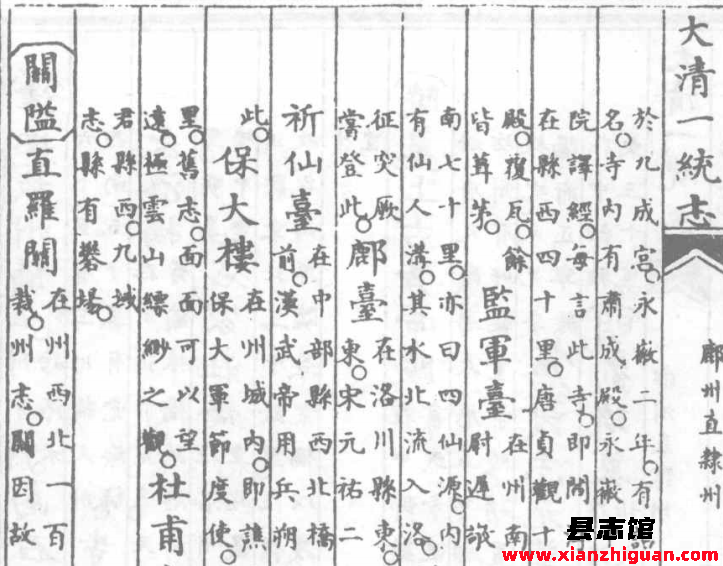 大清一統志
鄜州直隸州
於九成宮永徽二年有
名寺内有肅成殿永徽
院譯經每言此寺即閣
在縣西四十里唐貞觀十
殿覆瓦餘
皆葺茅
監軍臺
在州南
尉遲敬
南七十里亦曰四仙源内
有仙人溝其水北流入洛
征突厥
嘗登此
鄜臺
在洛川縣東
東宋元祐二
祈仙臺
在中部縣西北橋
前漢武帝用兵朔
此
保大樓
在州城内即譙
保大軍節度使
里舊志面面可以望
遠極雲山縹緲之觀
杜甫
君縣西九域
志縣有礬場
關隘
直羅關
在州西北一百
裁州志關因故
县志馆
www.xianzhiguan.com